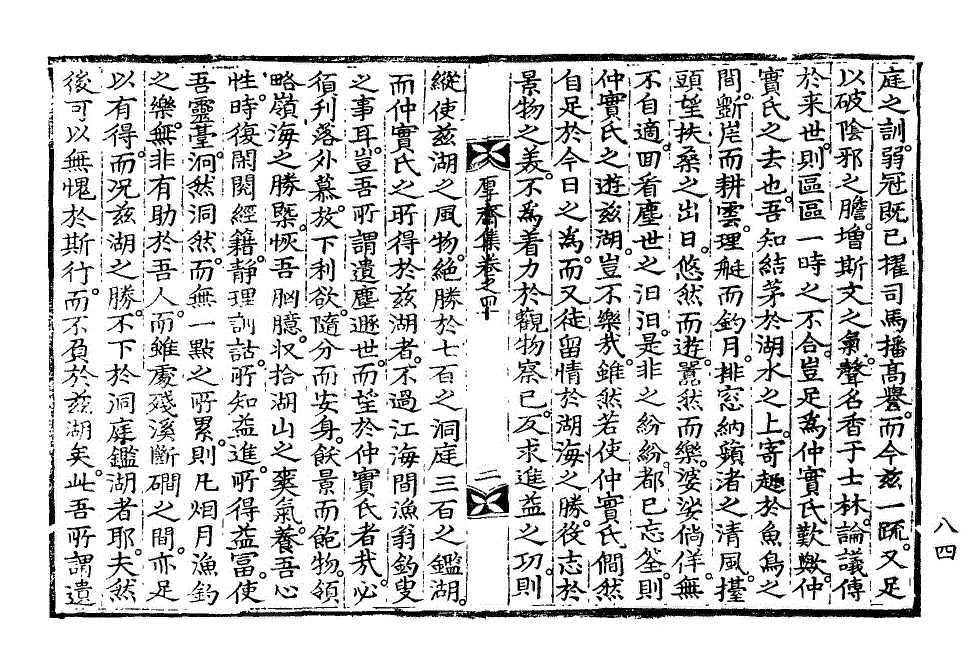 庭之訓弱冠既已擢司馬播高譽而今玆一疏又足
以破陰邪之膽增斯文之氣聲名香于士林論議傳
於来世則區區一時之不合豈足為仲實氏歎㦲仲
實氏之去也吾知結茅於湖水之上寄趣於魚鳥之
間斲崖而耕雲理艇而釣月排窓納蘋渚之清風擡
頭望扶桑之出日悠然而遊囂然而樂婆娑倘佯無
不自適回看塵世之汨汨是非之紛紛都已忘筌則
仲實氏之遊玆湖豈不樂㦲雖然若使仲實氏僩然
自足於今日之為而又徒留情於湖海之勝後志於
景物之美不為着力於觀物察已反求進益之功則
厚齋集卷之四十
二
縱使玆湖之風物絶勝於七百之洞庭三百之鑑湖
而仲實氏之所得於玆湖者不過江海間漁翁釣叟
之事耳豈吾所謂遺塵遯世而望於仲實氏者㦲必
須刋落外慕放下利欲隨分而安身飫景而飽物領
略嶺海之勝槩恢吾胸臆収拾湖山之爽氣養吾心
性時復閱閱經籍靜理訓詁所知益進所得益富使
吾靈䑓洞然洞然而無一點之所累則凡烟月漁釣
之樂無非有助於吾人而雖處殘溪斷磵之間亦足
以有得而况玆湖之勝不下於洞庭鑑湖者耶夫然
後可以無愧於斯行而不負於玆湖矣此吾所謂遺
八四